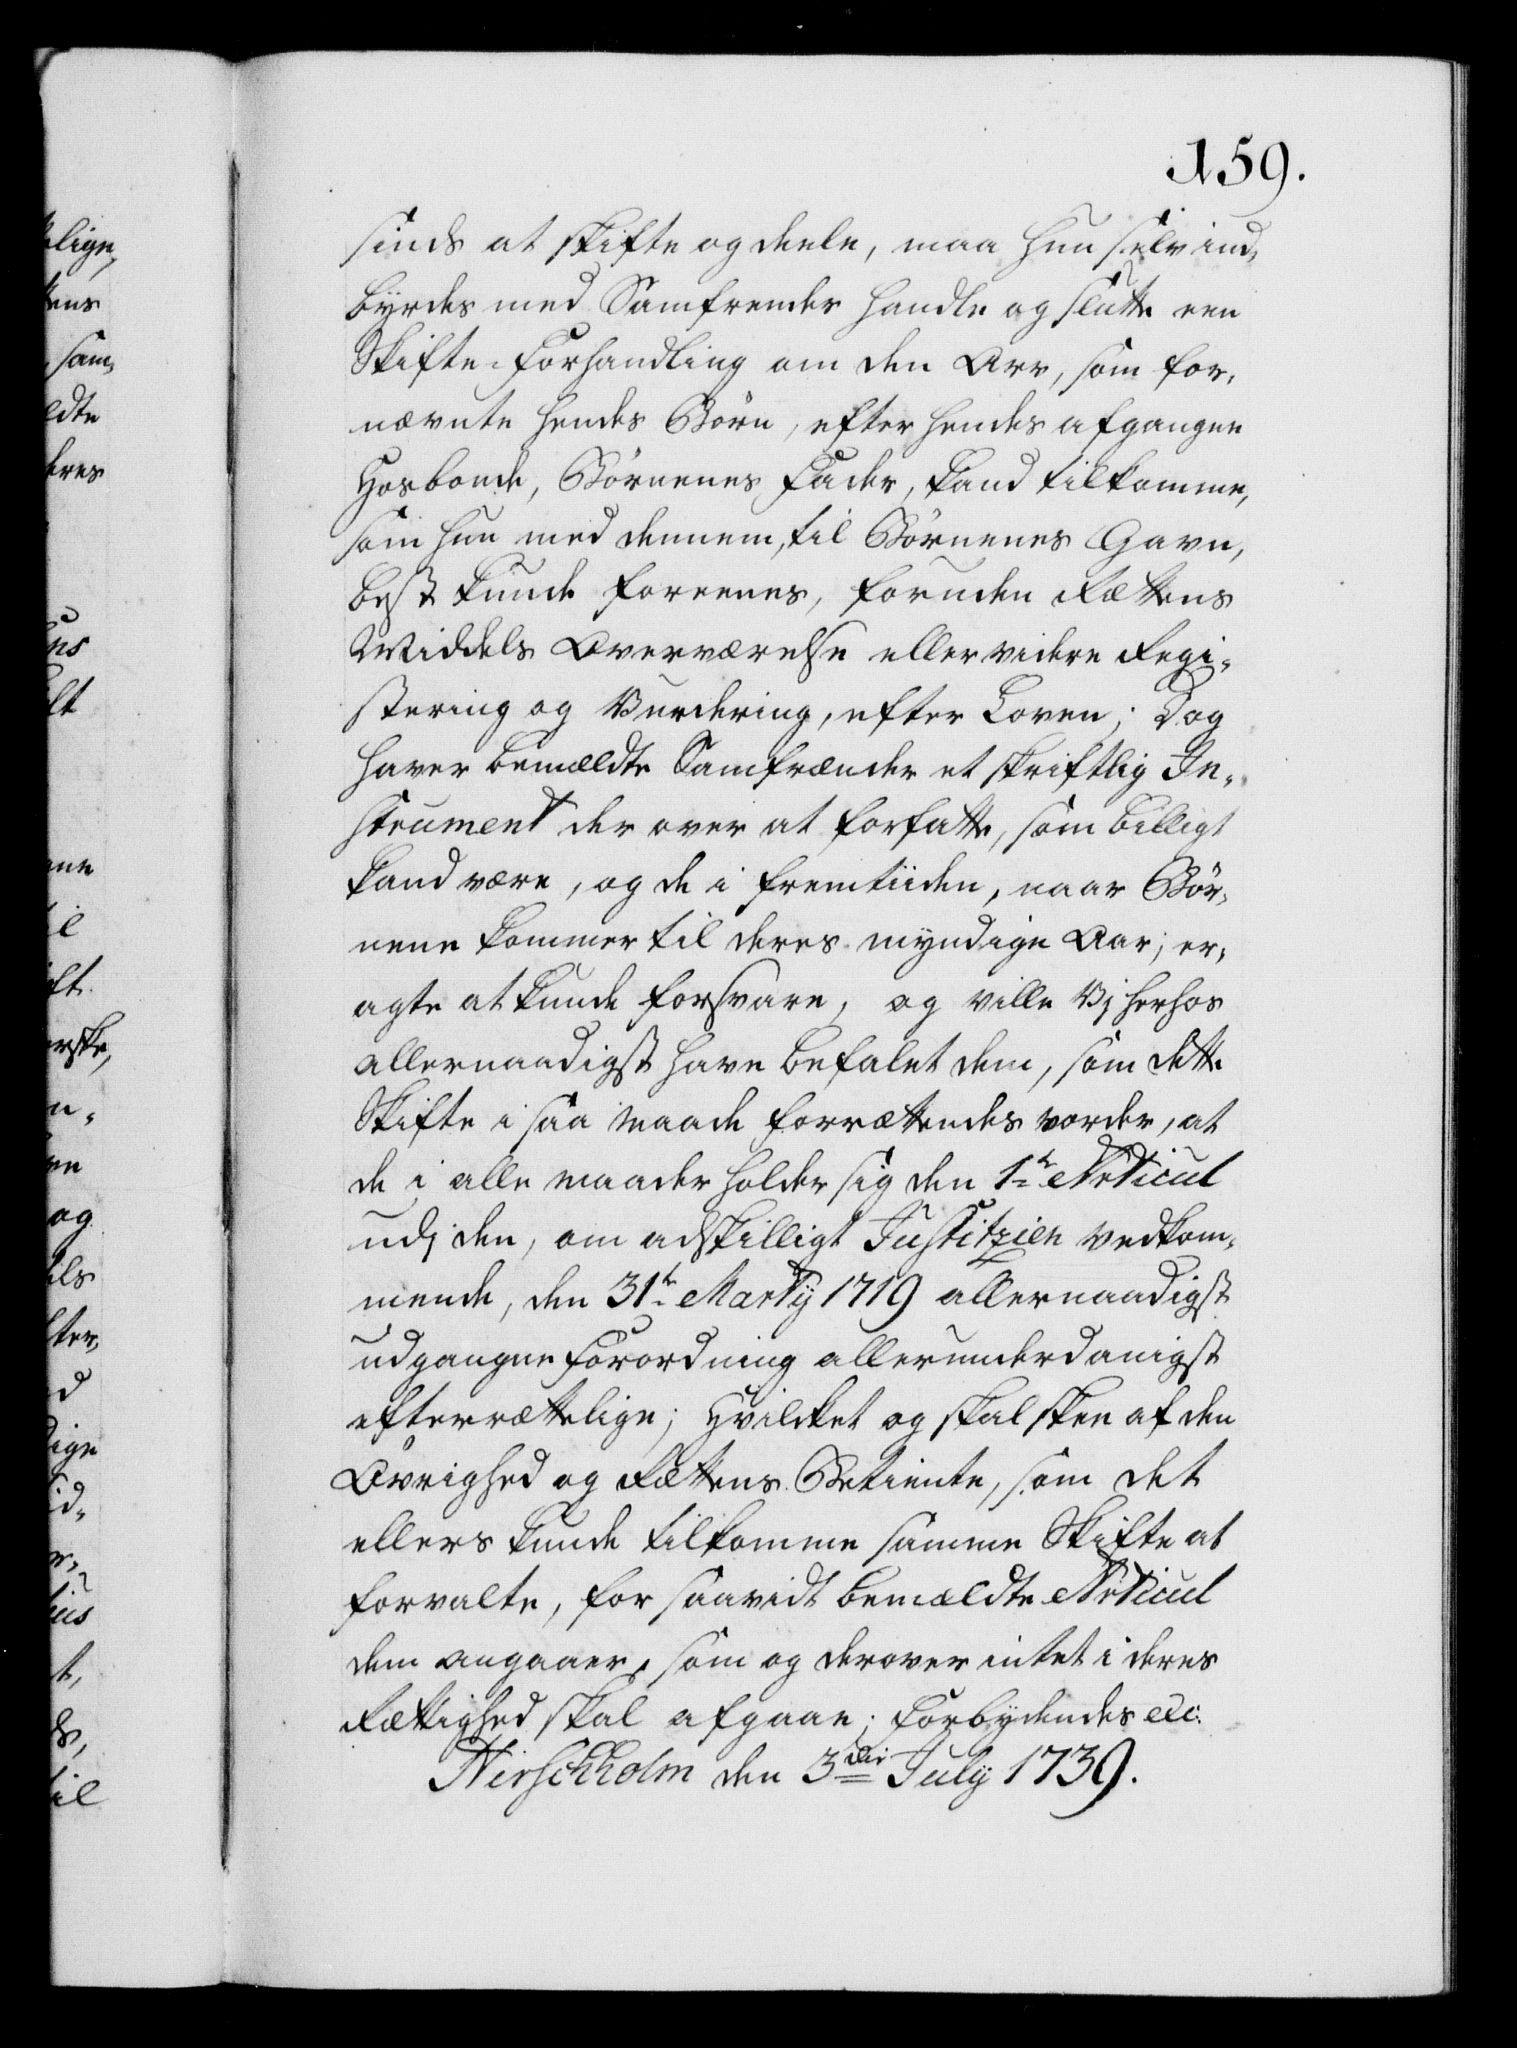 159.
sinds at skifte og deele, maa hun selv ind,
byrdes med Samfrender handle og slutte een
Skifte-Forhandling om den Arv, som for,
nævnte hendes Börn, efter hendes afgangne
Hosbonde, Börnenes Fader, kand tilkomme,
som hun med dennem, til Börnenes Gavn,
best kunde foreenes, foruden Rættens
Middels Overværelse eller videre Regi-
stering og Vurdering, efter Loven; Dog
haver bemældte Samfrænder et skriftlig In-
strument der over at forfatte, som billigt
kand være, og de i fremtiiden, naar Bör,
nene kommer til deres myndige Aar; er,
agte at kunde forsvare, og ville Vj herhos
allernaadigst have befalet dem, som dette
Skifte i saa maade forrettendes vorder, at
de i alle maader holder sig den 1te Articul
udj den, om adskilligt Justitzien vedkom,
mende, den 31te Martij 1719 allernaadigst
udgangne Forordning allerunderdanigst
efterrættelige; Hvilcket og skal skee af den
Øvrighed og Rættens Betiente, som det
ellers kunde tilkomme samme Skifte at
forvalte, for saavidt bemældte Articul
dem angaaer, som og derover intet i deres
Rættighed skal afgaae; Forbydendes etc:
Hirschholm den 3die July 1739.
elige,
tens
sam,
ldte
deres
ens
elt
ene
il
ift.
erske,
n-
re
og
els
ter,
d
dige
id-
r,
ius
t,
ds,
til